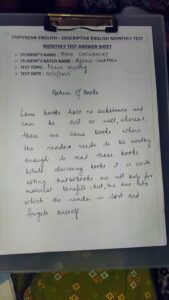 EMPYREAN ENGLISH - DESCRIPTIVE ENGLISH MONTHLY TEST
MONTHLY TEST ANSWER SHEET
> STUDENT'S NAME :
> STUDENT'S BATCH NAME :
> TEST TOPIC : Precis Writing
> TEST DATE :
Nature Of Books
Some books hold no substance and
can be evil as well, whereas,
there are some books where
the reader needs to be worthy
enough to read those books
While devouring books it is worth
noting that books are not only for
material benefits but, the one into
which the reader is lost and
forgets oneself